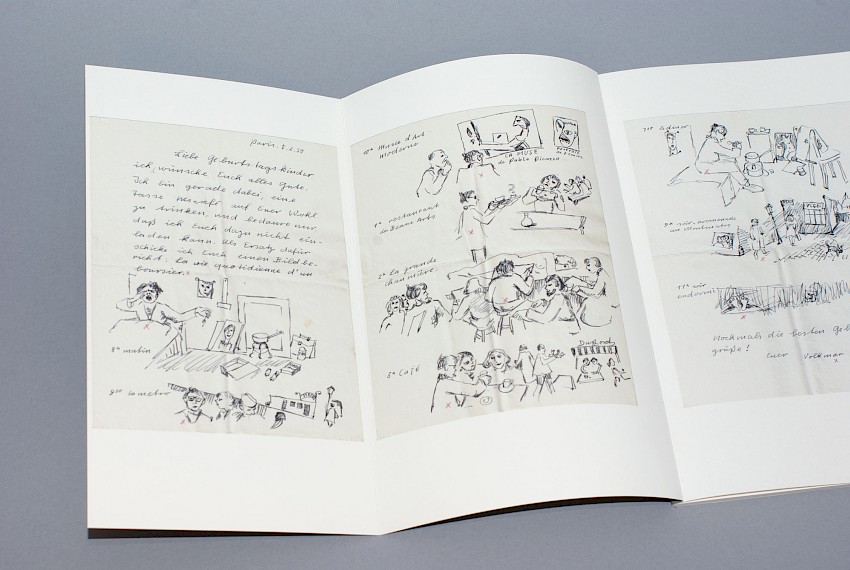 Paris, 8.2.59
Liebe Geburtstagskinder
ich wünsche Euch alles Gute.
Ich bin gerade dabei, eine
Tasse Nescafé auf Euer Wohl
zu trinken, und bedaure nur,
daß ich Euch dazu nicht ein-
laden kann. Als Ersatz dafür
schicke ich Euch einen Bildbe-
richt: La vie quotidienne d'un
boursier.
8°° matin
9°° le metro
10°° Musée d'Art
Moderne
LA MUSE
de Pablo Picasso
1°° restaurant
des Beaux Arts
2°° la grande
chaumière
5°° Café
Dupont
7°° à diner
11°° wir
Nochmals die besten Geb
grüße!
Euer Volkmar